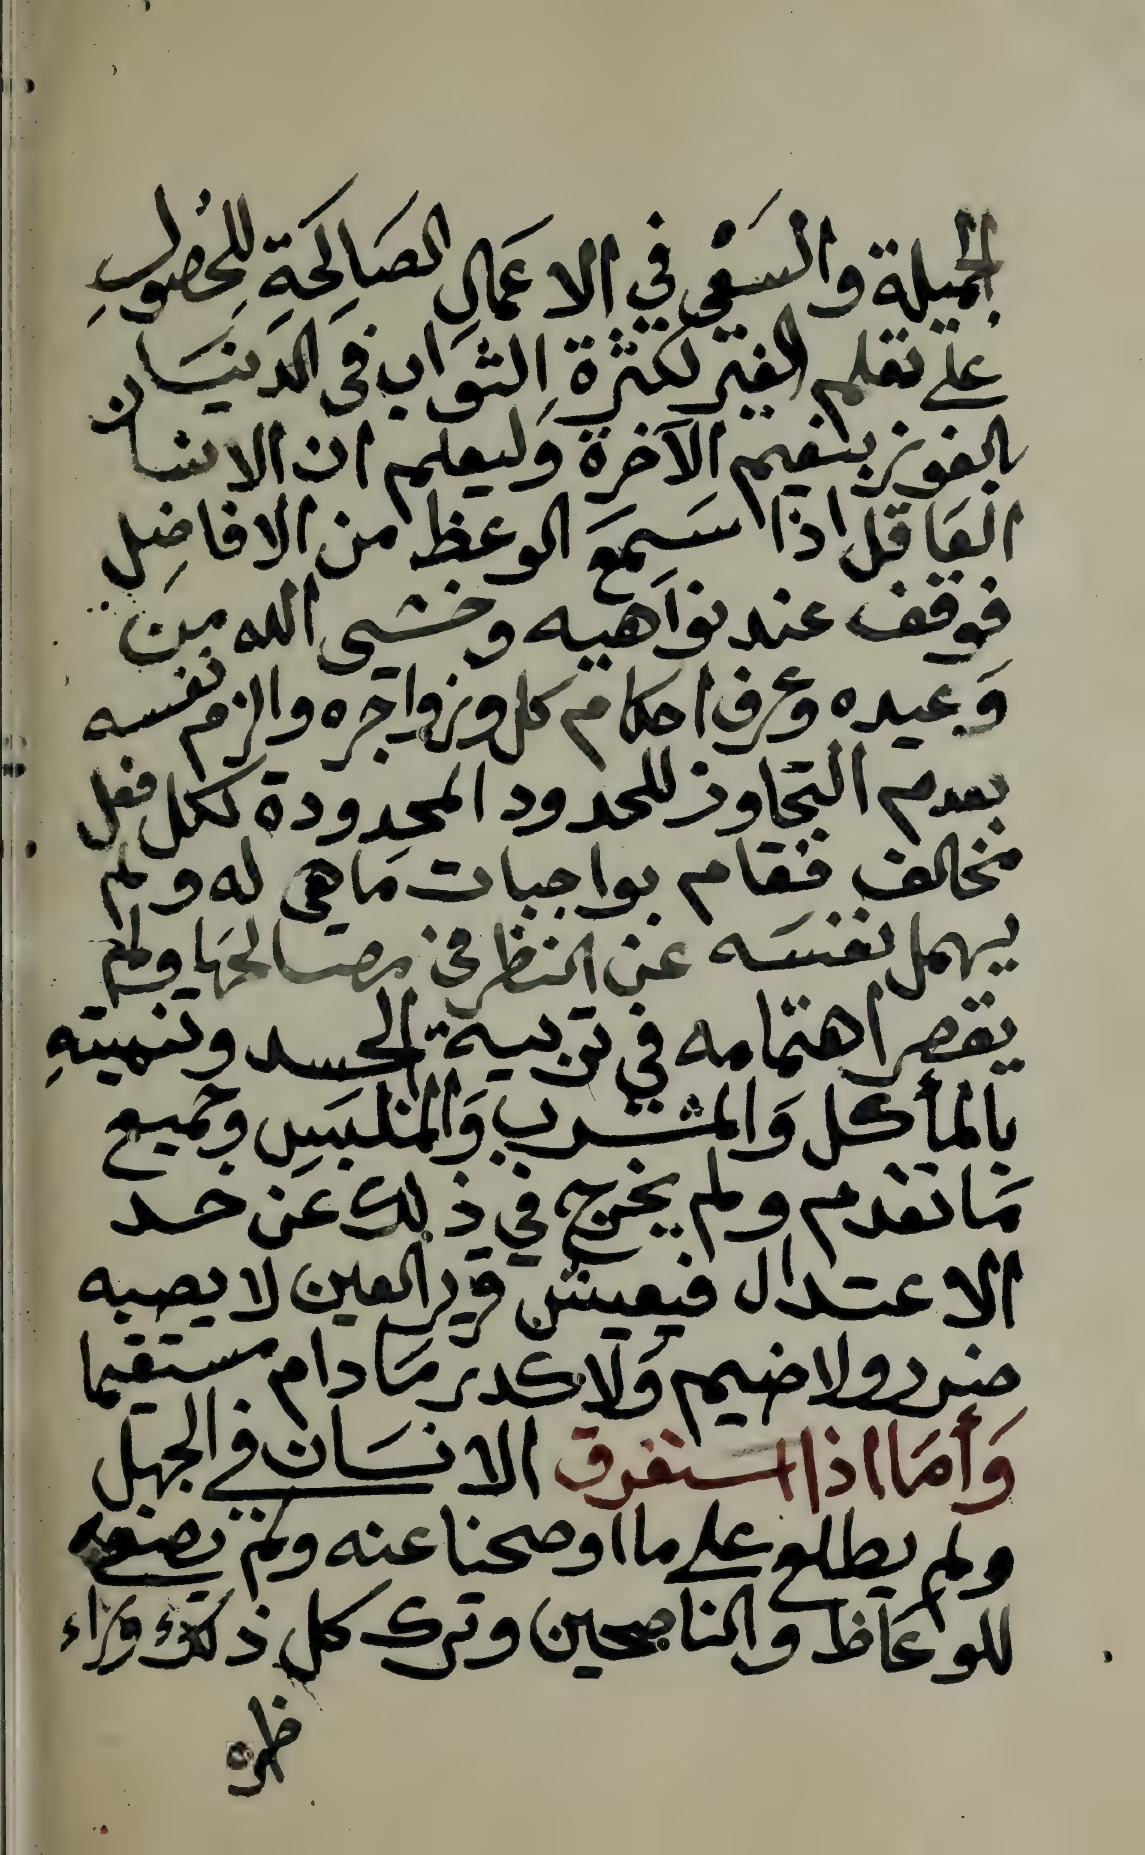 الجميلة والسَعْى في الاعَمال الصَالِحَةِ للحُصولِ
على تعلم الغير لكثرة الثوَاب فى الدنيَا
بالفوز بنعيم الآخرة وَليعلم ان الانسان
العَاقل اذا سَمِعَ الوعظ من الافاضِل
فوقف عند نوَاهيه وخشى الله مِن
وَعيده وعرف احكام كل وزواجره والزم نفسه
بعدم التجاوز للحدود المحدودة لكل فعل
مخالف فقام بواجبات مَاهى له ولم
يهمل نفسَه عَن النظر فى مصَالحهَا ولم
يقصر اهتمامه في تربية الجسد وتنميتهِ
بالمأكل وَالمشرب وَالملبَسِ وَجميع
مَاتقدم ولم يخرج في ذلك عَن حد
الاعتدال فيعيش قرير العين لا يصبه
ضرر ولا ضيم وَلا كدر مَا دام مستقيما
وَأمَا اذا استغرق الانسَان في الجهل
ولم يطلع على ما اوضحنا عنه ولم يصغ
للوعَاظ والناصحين وترك كل ذلك وَرَاء
ظهره